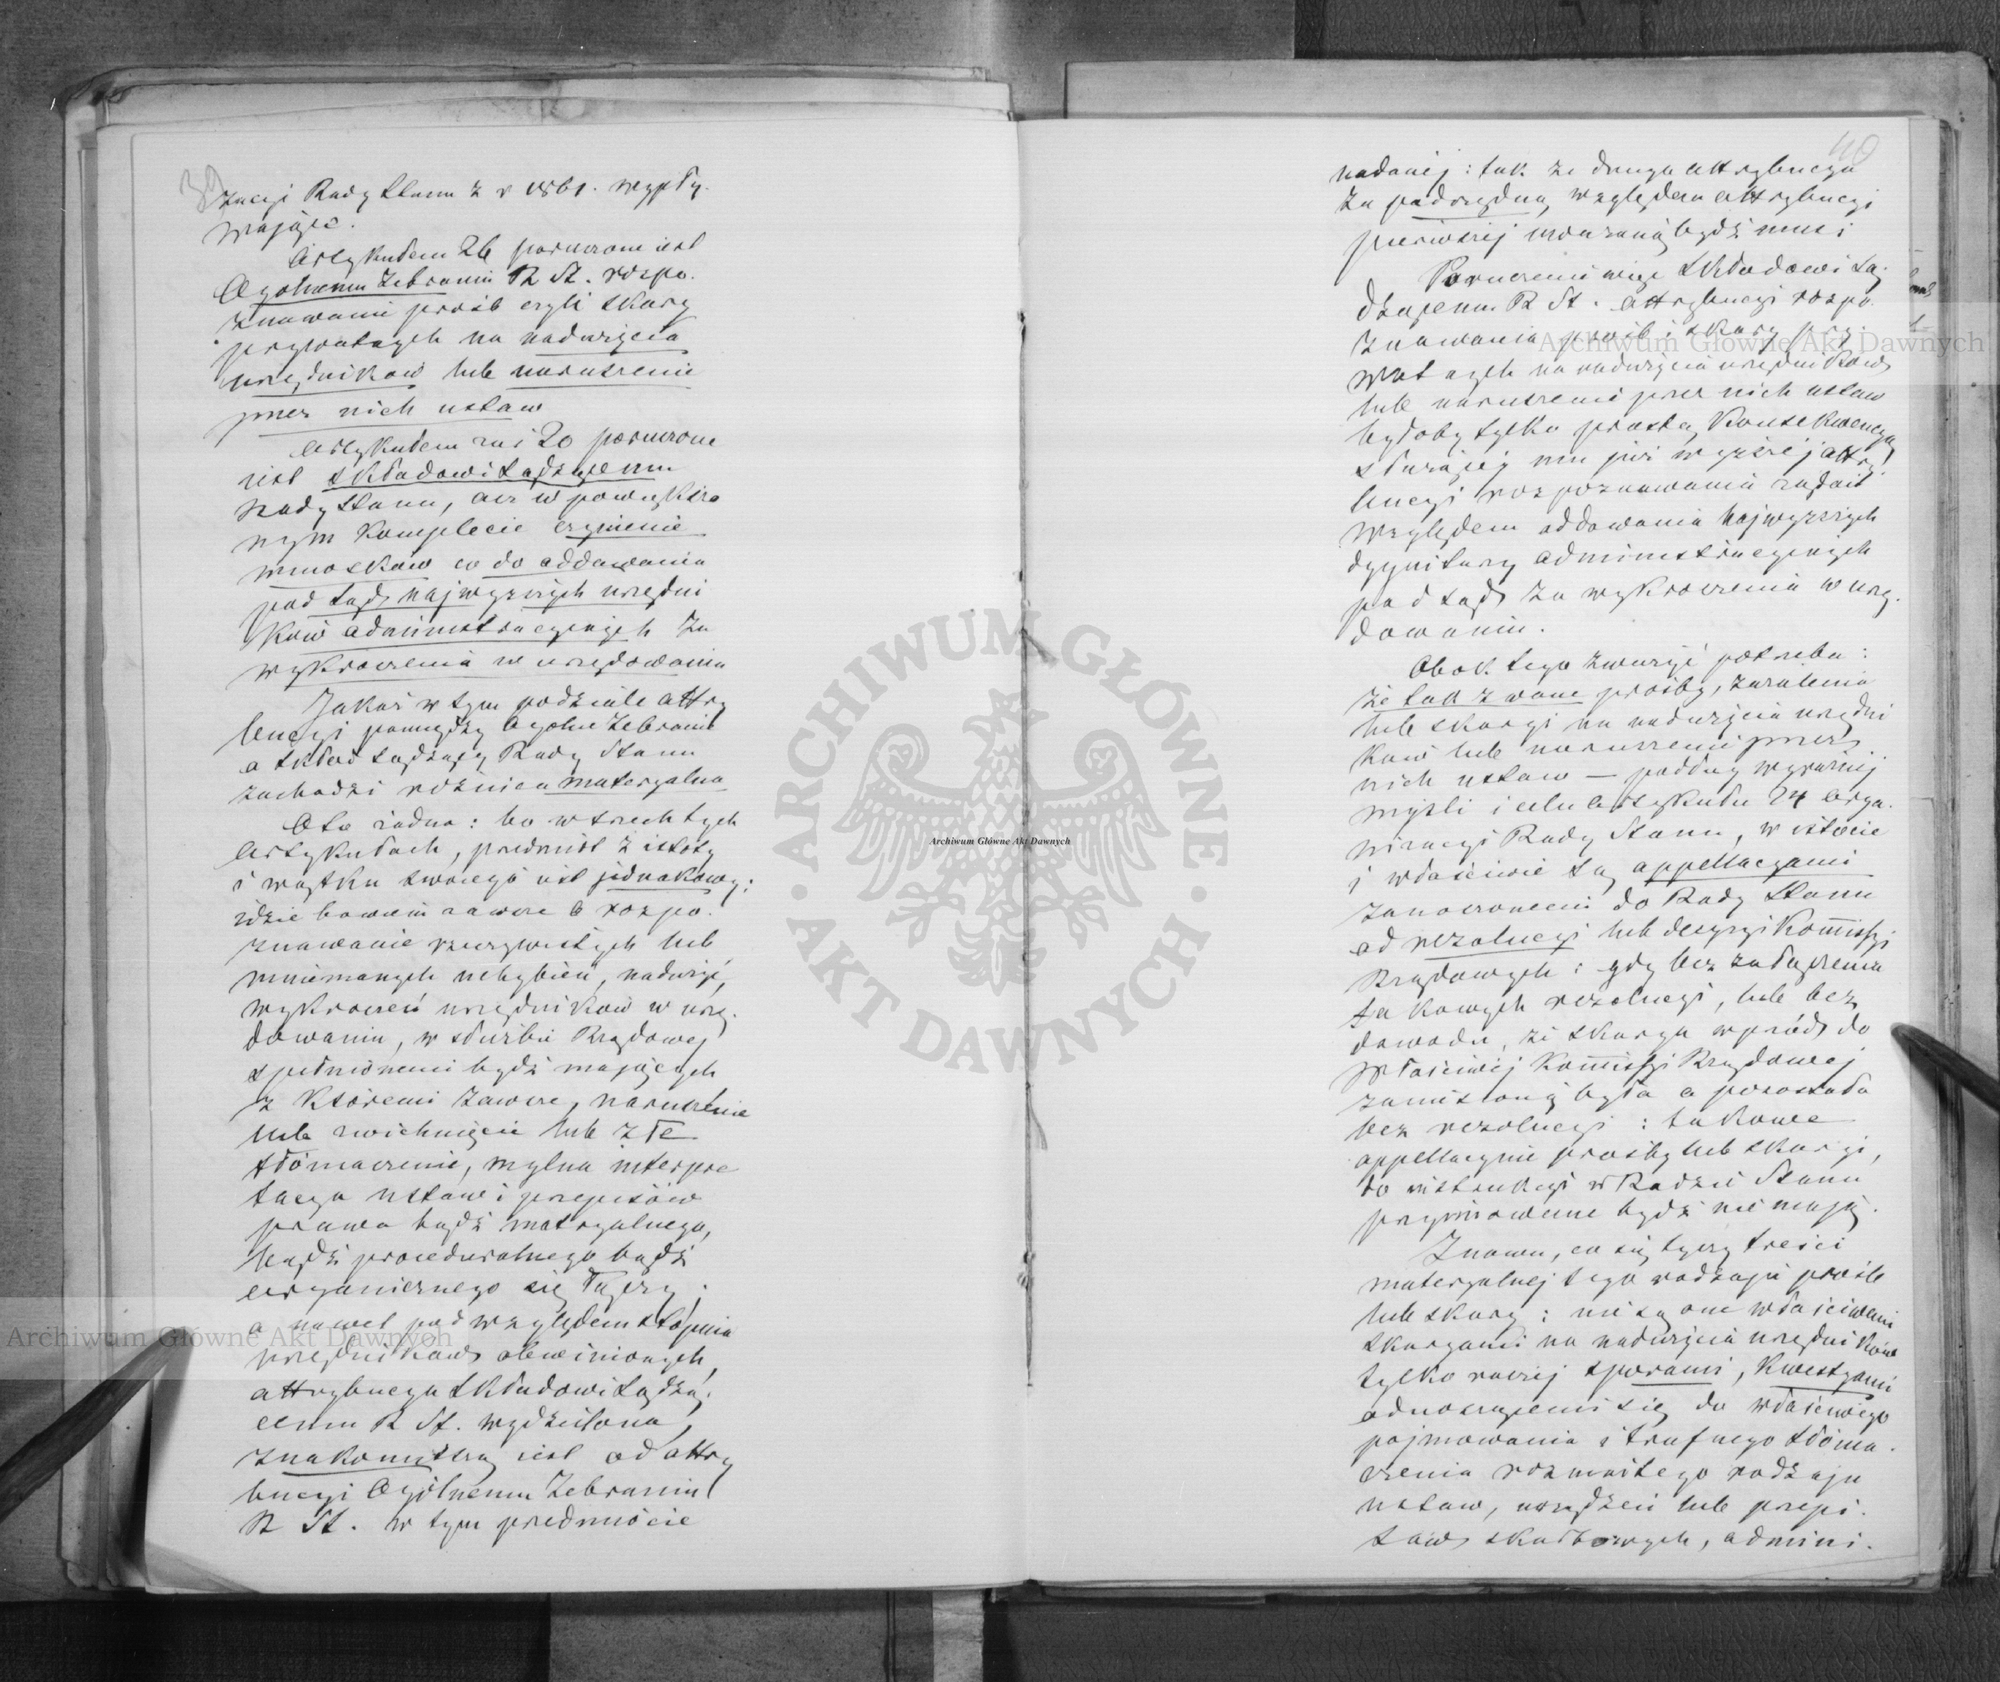 39
zacyi Rady Stanu z r 1861. wypły-
wające.
Artykułem 26 poruczone jest
Ogólnemu Zebraniu R St. rozpo-
znawanie prośb czyli skarg
prywatnych na nadużycia
urzędników lub naruszenie
przez nich ustaw
Artykułem zaś 20 poruczone
jest składowi sądzącemu
Rady Stanu, acz w powiększo
nym komplecie czynienie
wniosków co do oddawania
pod sąd najwyższych urzędni
ków administracyjnych za
wykroczenia w urzędowaniu
Jakaż w tym podziale attry
bucyi pomiędzy Ogólne Zebranie
a skład sądzący Rady Stanu
zachodzi różnica materyalna
Oto żadna: bo w trzech tych
Artykułach, przedmiot z istoty
i wątku swojego jest jednakowy;
idzie bowiem zawsze o rozpo-
znawanie rzeczywistych lub
mniemanych uchybień, nadużyć,
wykroczeń urzędników w urzę-
dowaniu, w służbie Rządowej
spełnionemi bydź mających
z któremi zawsze, naruszenie
lub zwichnięcie lub złe
tłómaczenie, mylna interpre
tacya ustaw i przepisów
prawa bądź materyalnego,
bądź proceduralnego bądź
organicznego się łączy;
a nawet pod względem stopnia
urzędników obwinionych,
attrybucya składowi sądzą-
cemu R St. wydzielona,
znakomitszą jest od attry
bucyi Ogólnemu Zebraniu
R St. w tym przedmiocie
40
nadanej: tak że druga attrybucya
za podrzędną względem attrybucyi
pierwszej uważaną bydź musi
Poruczenie więc składowi są-
dzącemu R St. attrybucyi rozpo-
znawania prośb i skarg pry-
watnych na nadużycia urzędników
lub naruszenie przez nich ustaw
byłoby tylko prostą konsekwencyą
służącej mu już wyższej attry-
bucyi rozpoznawania żądań
względem oddawania najwyższych
dygnitarzy administracyjnych
pod sąd za wykroczenia w urzę-
dowaniu.
Obok tego zważyć potrzeba:
że tak zwane prośby, zażalenia
lub skargi na nadużycia urzędni
ków lub naruszenie przez
nich ustaw — podług wyraźnej
myśli i celu Artykułu 24 Orga-
nizacyi Rady Stanu, w istocie
i właściwie są appellacyami
zanoszonemi do Rady Stanu
od rezolucyi lub decyzyi Kommissyi
Rządowych: gdy bez załączenia
takowych rezolucyi, lub bez
dowodu, że skarga wprzód do
właściwej Kommissyi Rządowej
zaniesioną była a pozostała
bez rezolucyi: takowe
appellacyjne prośby lub skargi,
do instrukcyi w Radzie Stanu
przyjmowane bydź nie mają.
Znowu, co się tyczy treści
materyalnej tego rodzaju prośb
lub skarg; nie są one właściwemi
skargami na nadużycia urzędników
tylko raczej sporami, kwestyami
odnoszącemi się do właściwego
pojmowania i trafnego tłóma-
czenia rozmaitego rodzaju
ustaw, urządzeń lub przepi-
sów skarbowych, admini-
Archiwum Główne Akt Dawnych
Archiwum Główne Akt Dawnych
Archiwum Główne Akt Dawnych
ARCHIWUM GŁÓWNE AKT DAWNYCH